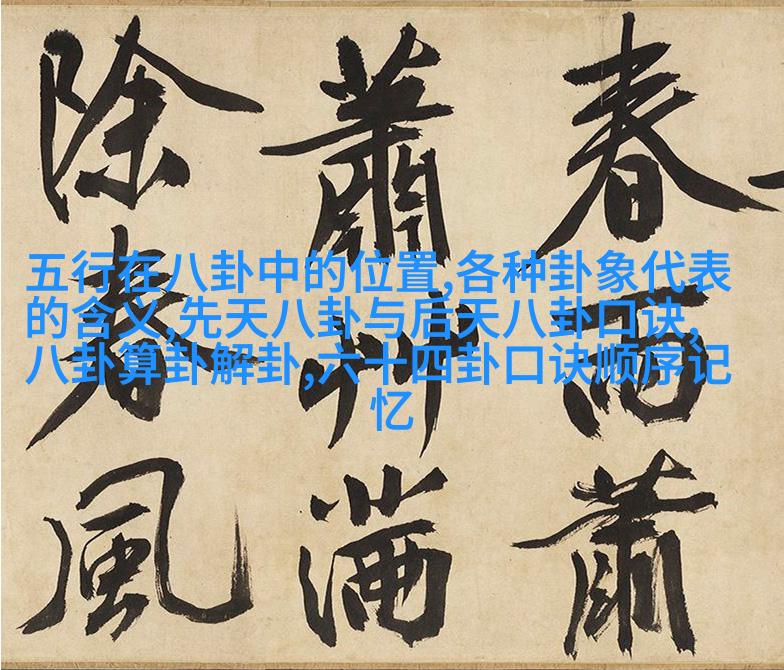 春雨蕭
蕭艸滿
除春風
五行在八卦中的位置,各种卦象代表
的含义,先天八卦与后天八卦口诀,
八卦算卦解卦,六十四卦口诀顺序记
忆